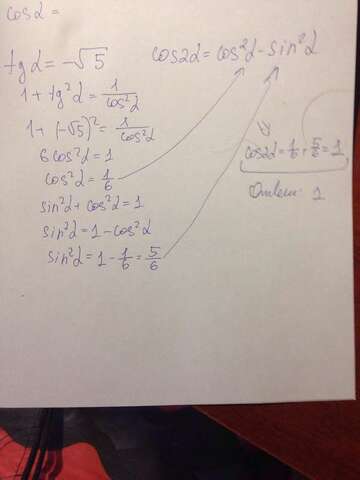 cosα =
tgα = -√5
1 + tg²α = 1/cos²α
1 + (-√5)² = 1/cos²α
6cos²α = 1
cos²α = 1/6
sin²α + cos²α = 1
sin²α = 1 - cos²α
sin²α = 1 - 1/6 = 5/6
cos2α = cos²α - sin²α
cos2α = 1/6 + 5/6 = 1
Ответ: 1